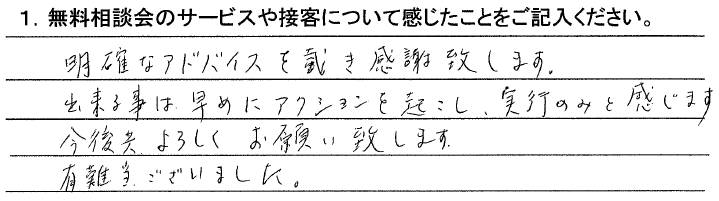 1. 無料相談会のサービスや接客について感じたことをご記入ください。
明確なアドバイスを戴き感謝致します。
出来る事は早めにアクションを起こし、実行のみと感じます
今後共よろしくお願い致します。
有難当ございました。